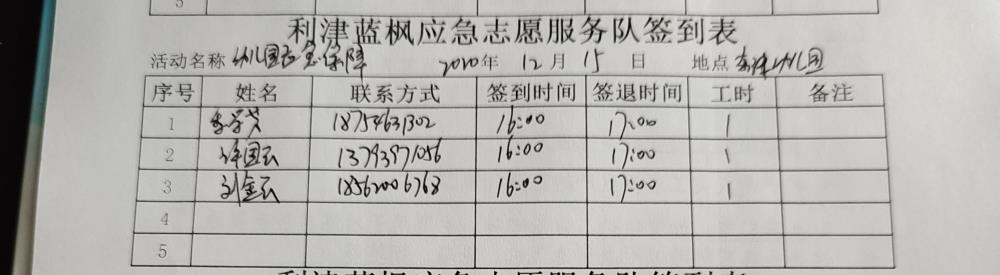 5
利津蓝枫应急志愿服务队签到表
活动名称 幼儿园应急保障 2020年 12月 15日 地点 幼儿园
序号 姓名 联系方式 签到时间 签退时间 工时 备注
1 18754631302 16:00 17:00 1
2 许国云 13793971056 16:00 17:00 1
3 刘金云 18562006768 16:00 17:00 1
4
5
利津蓝枫应急志愿服务队签到表